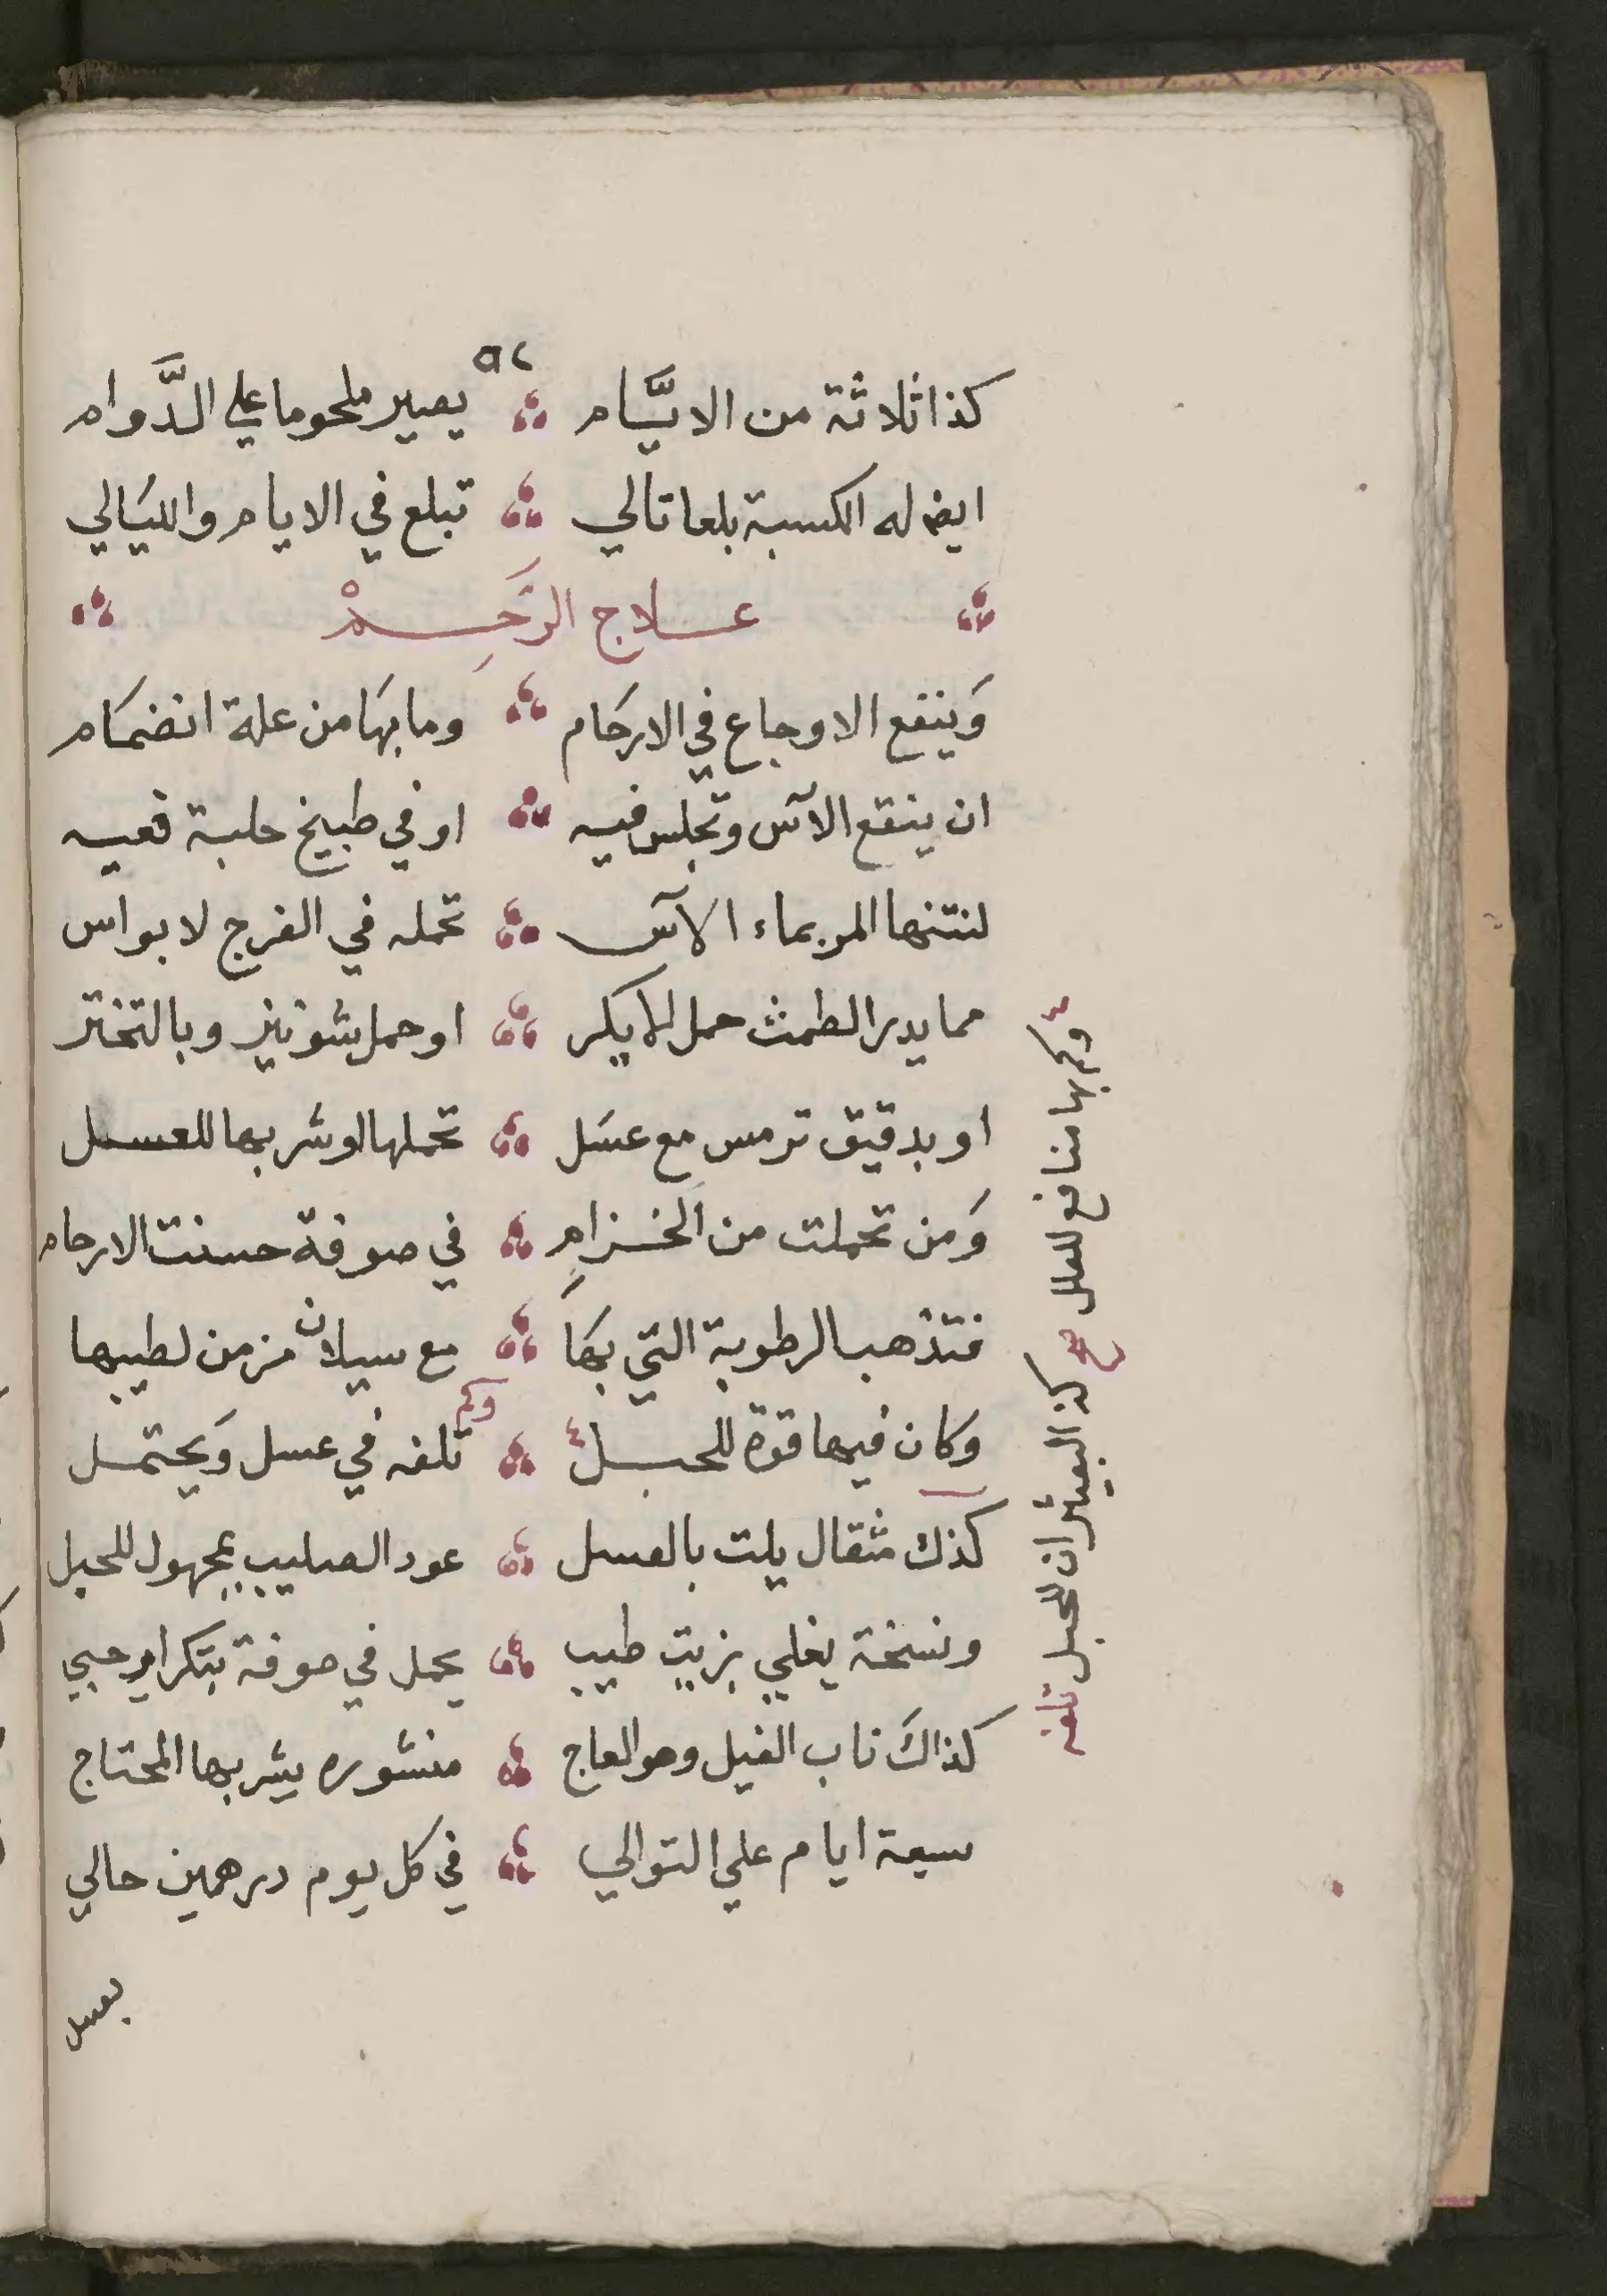 ٥٢
كذا ثلاثة من الايَّام يصير ملحوما علي الدَّوام
ايضا له الكسبة بلعا تالي تبلع في الايام والليَالي
عـلاج الرَّحِـمْ
وَينفع الاوجاع في الارحَام وما بهَا من علة انضمَام
ان ينقع الآس وتجلس فيه او في طبيخ حلبة فعيه
لنتنها المر بماء الآس تحمله في الفرج لا بواس
مما يدر الطمث حمل الايكر او حمل شونيز وبالتخثر
او بدقيق ترمس مع عسَل تحملها او شربها للعسل
وَمن تحملت من الخـزامِ في صوفة حسنت الارحام
فتذهب الرطوبة التي بهَا مع سيلان مزمن لطيبها
وكان فيها قوة للحبـل تلفه في عسل وَيحتمـل
وكم
كذك مثقال يلت بالعسل عود الصليب بمجهول للحبل
ونسخة يغلي بزيت طيب يحمل في صوفة بتكرار حبي
كذاكَ ناب الفيل وهو العاج منشوره يشربها المحتاج
سبعة ايام علي التوالي في كل يوم درهمين حالي
بعسل
وكم بها منافع للعلل صح كذا البعيثران للحبل تلفه